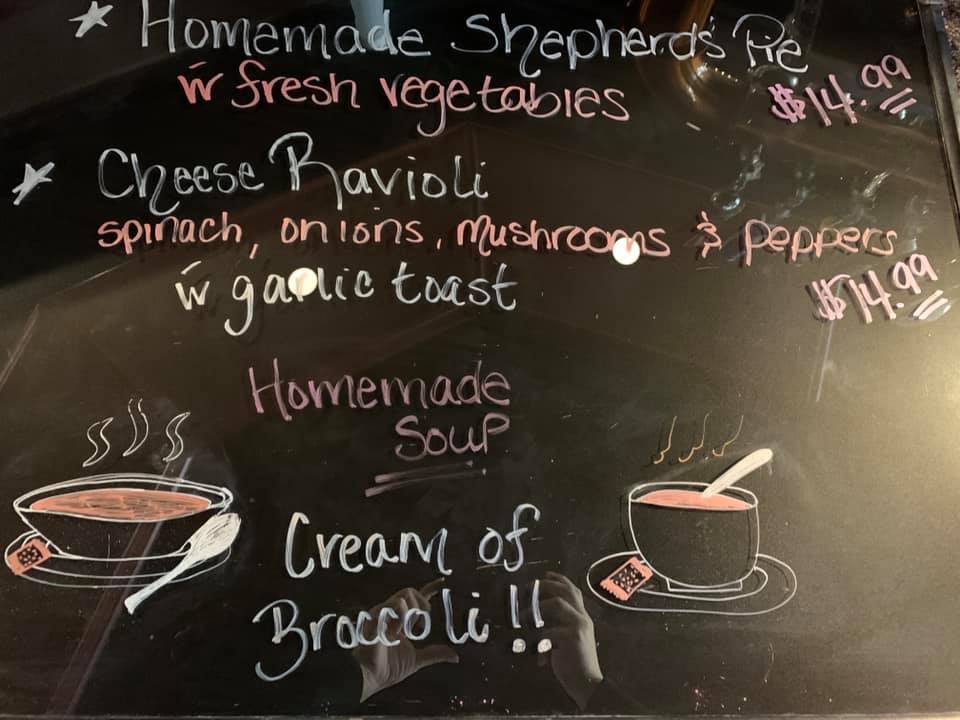 Homemade Shepherd's Pie
w fresh vegetables $14.99
Cheese Ravioli
spinach, onions, mushrooms & peppers
w garlic toast $14.99
Homemade
Soup
Cream of
Broccoli!!